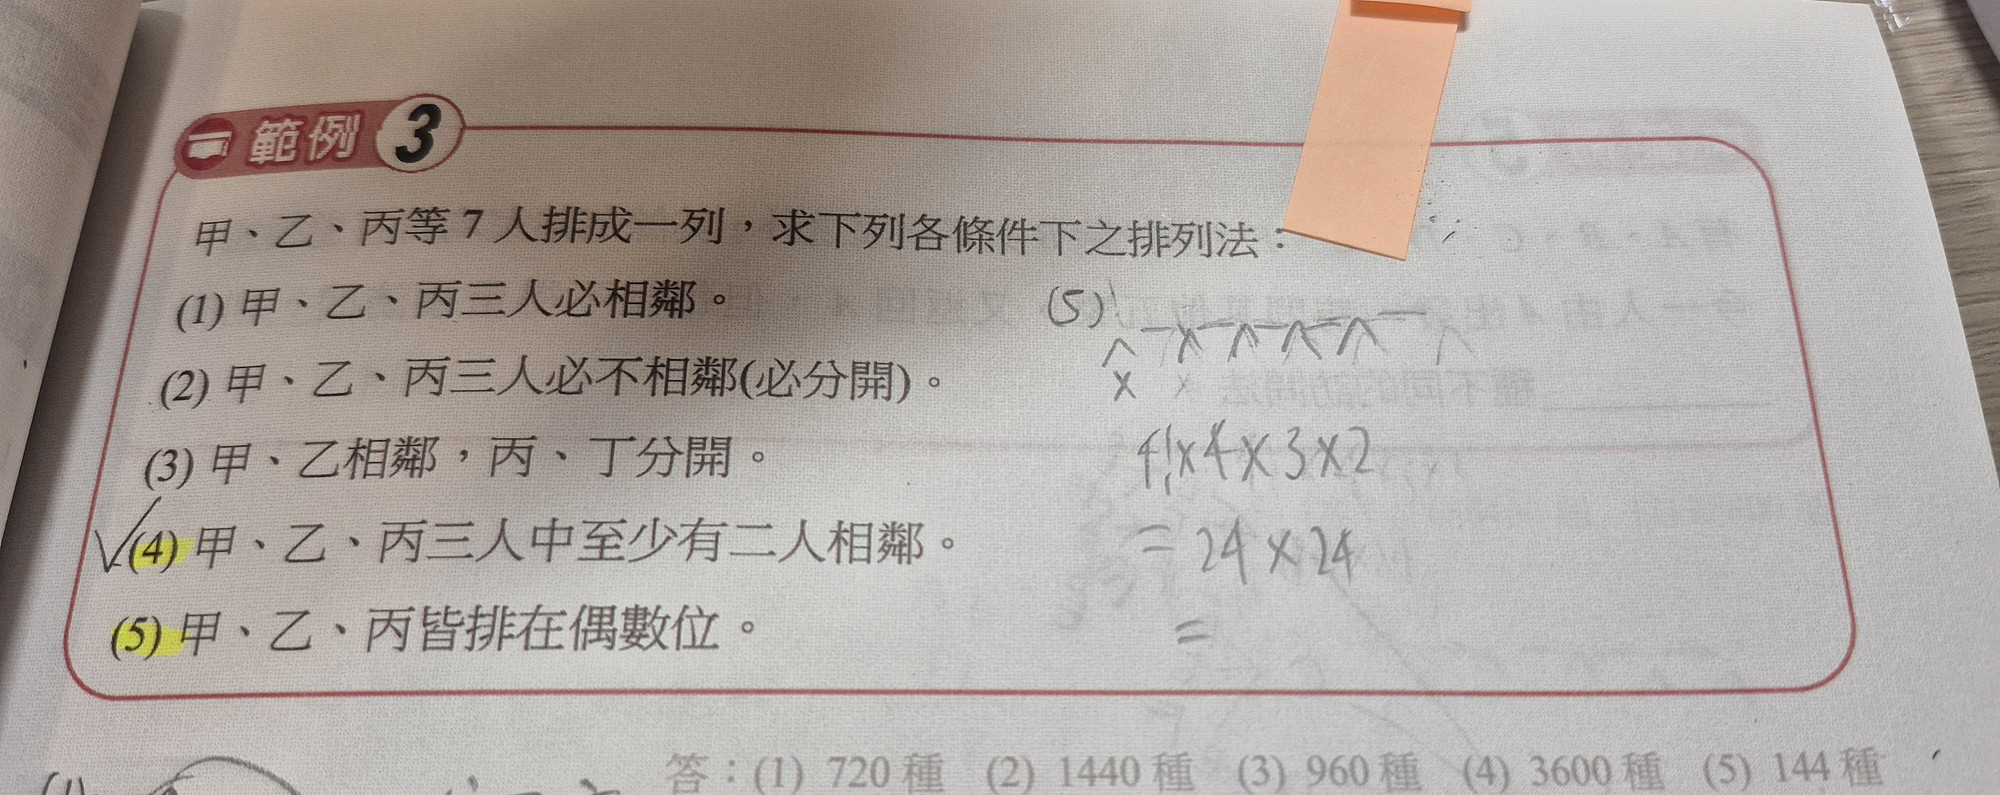 範例 3
甲、乙、丙等 7 人排成一列，求下列各條件下之排列法：
(1) 甲、乙、丙三人必相鄰。
(2) 甲、乙、丙三人必不相鄰(必分開)。
(3) 甲、乙相鄰，丙、丁分開。
(4) 甲、乙、丙三人中至少有二人相鄰。
(5) 甲、乙、丙皆排在偶數位。
(5)
4!×4×3×2
= 24×24
=
答：(1) 720 種 (2) 1440 種 (3) 960 種 (4) 3600 種 (5) 144 種
(1)